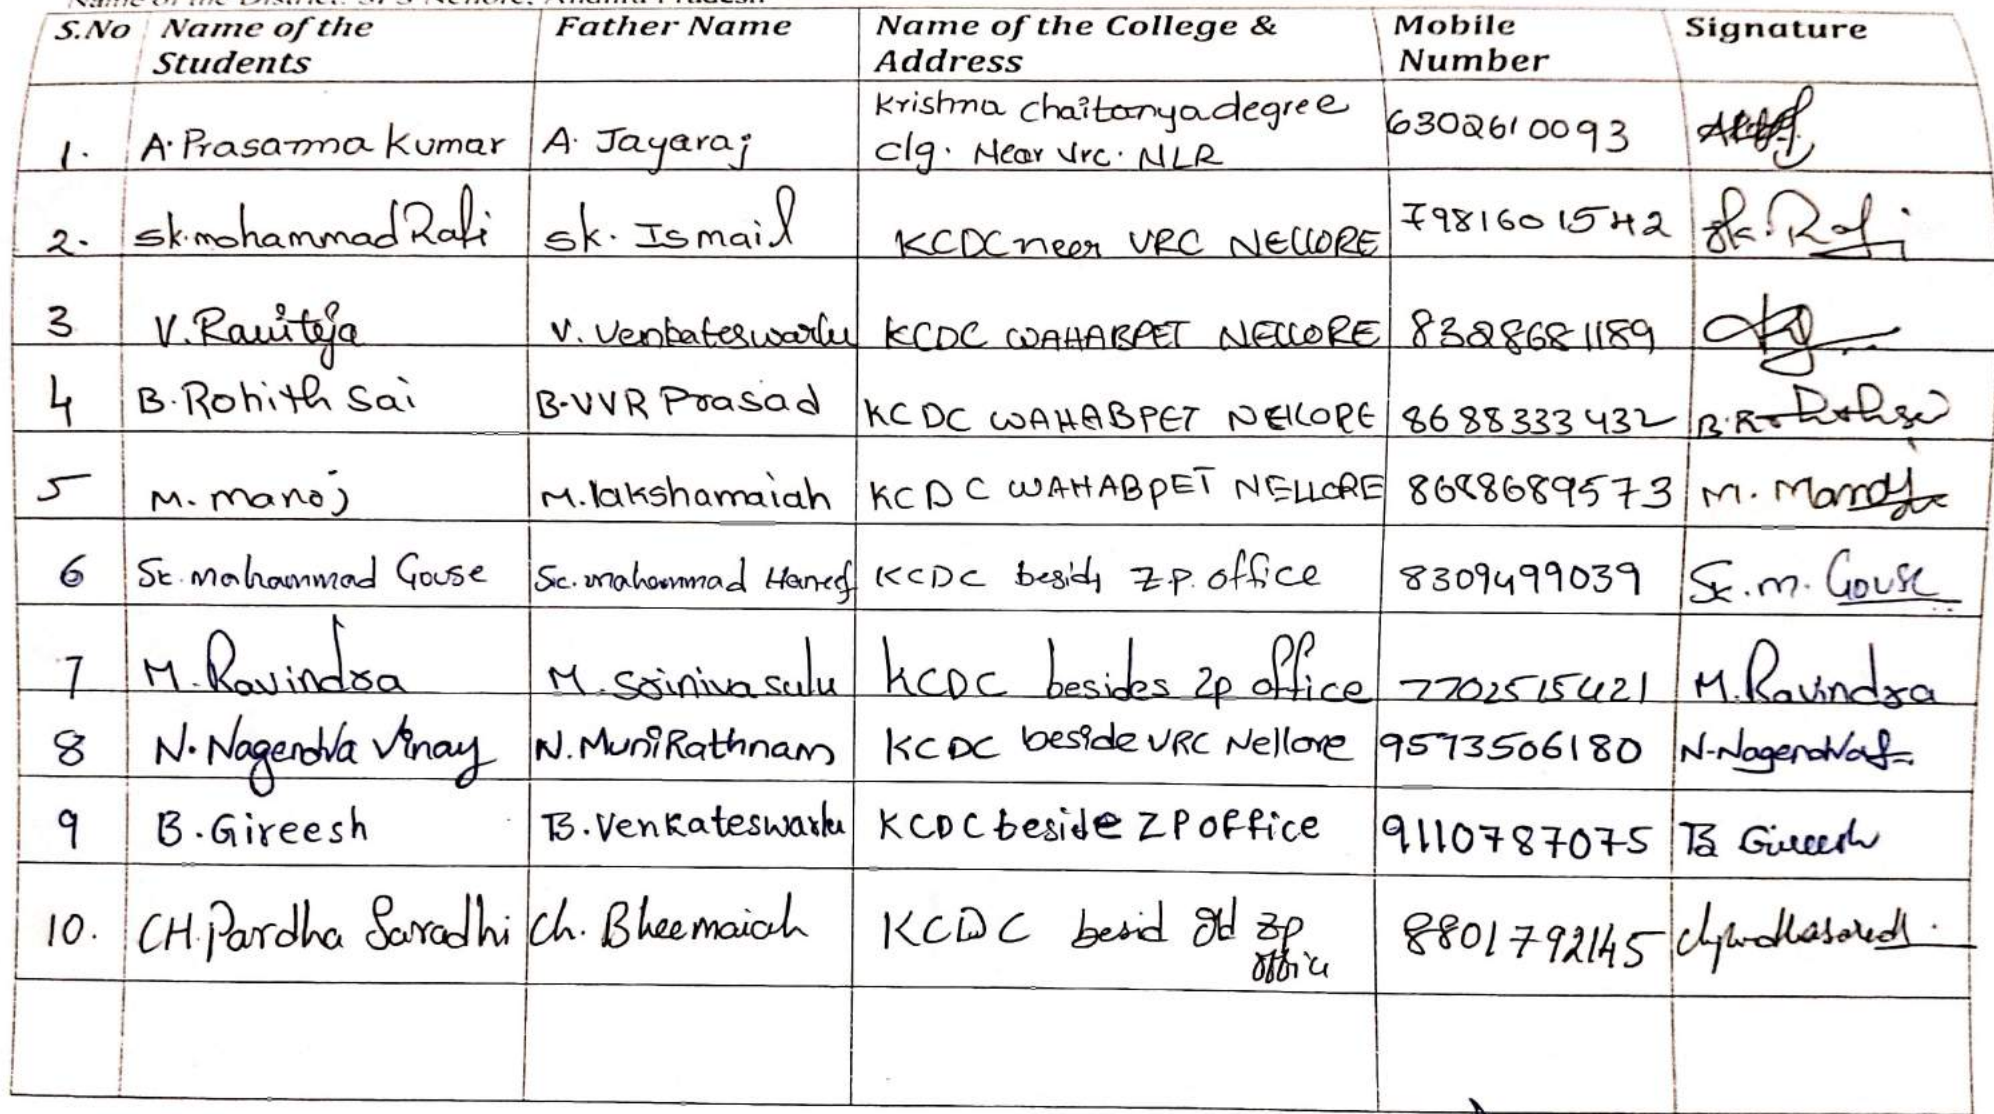 Name of the District: SPS Nellore, Andhra Pradesh
S.No Name of the Students Father Name Name of the College & Address Mobile Number Signature
1. A. Prasanna Kumar A. Jayaraj Krishna Chaitanya degree clg. Near Vrc. NLR 6302610093
2. Sk.mohammad Rafi Sk. Ismail KCDC neer VRC NELLORE 7981601542 Sk. Rafi
3 V. Raviteja V. Venkateswarlu KCDC WAHABPET NELLORE 8328681189
4 B. Rohith Sai B.VVR Prasad KCDC WAHABPET NELLORE 8688333432
5 M. manoj M. lakshamaiah KCDC WAHABPET NELLORE 8688689573 M. Manoj
6 Sk. mahammad Gouse Sk. mahammad Haneef KCDC besids Z.P. office 8309499039 Sk. m. Gouse
7 M. Ravindra M. Srinivasulu KCDC besides Zp office 7702515421 M. Ravindra
8 N. Nagendra Vinay N. MuniRathnam KCDC beside VRC Nellore 9573506180 N. Nagendra
9 B. Gireesh B. Venkateswarlu KCDC beside ZP office 9110787075 B Gireesh
10. CH. Pardha Saradhi Ch. Bheemaiah KCDC besid old Zp office 8801792145